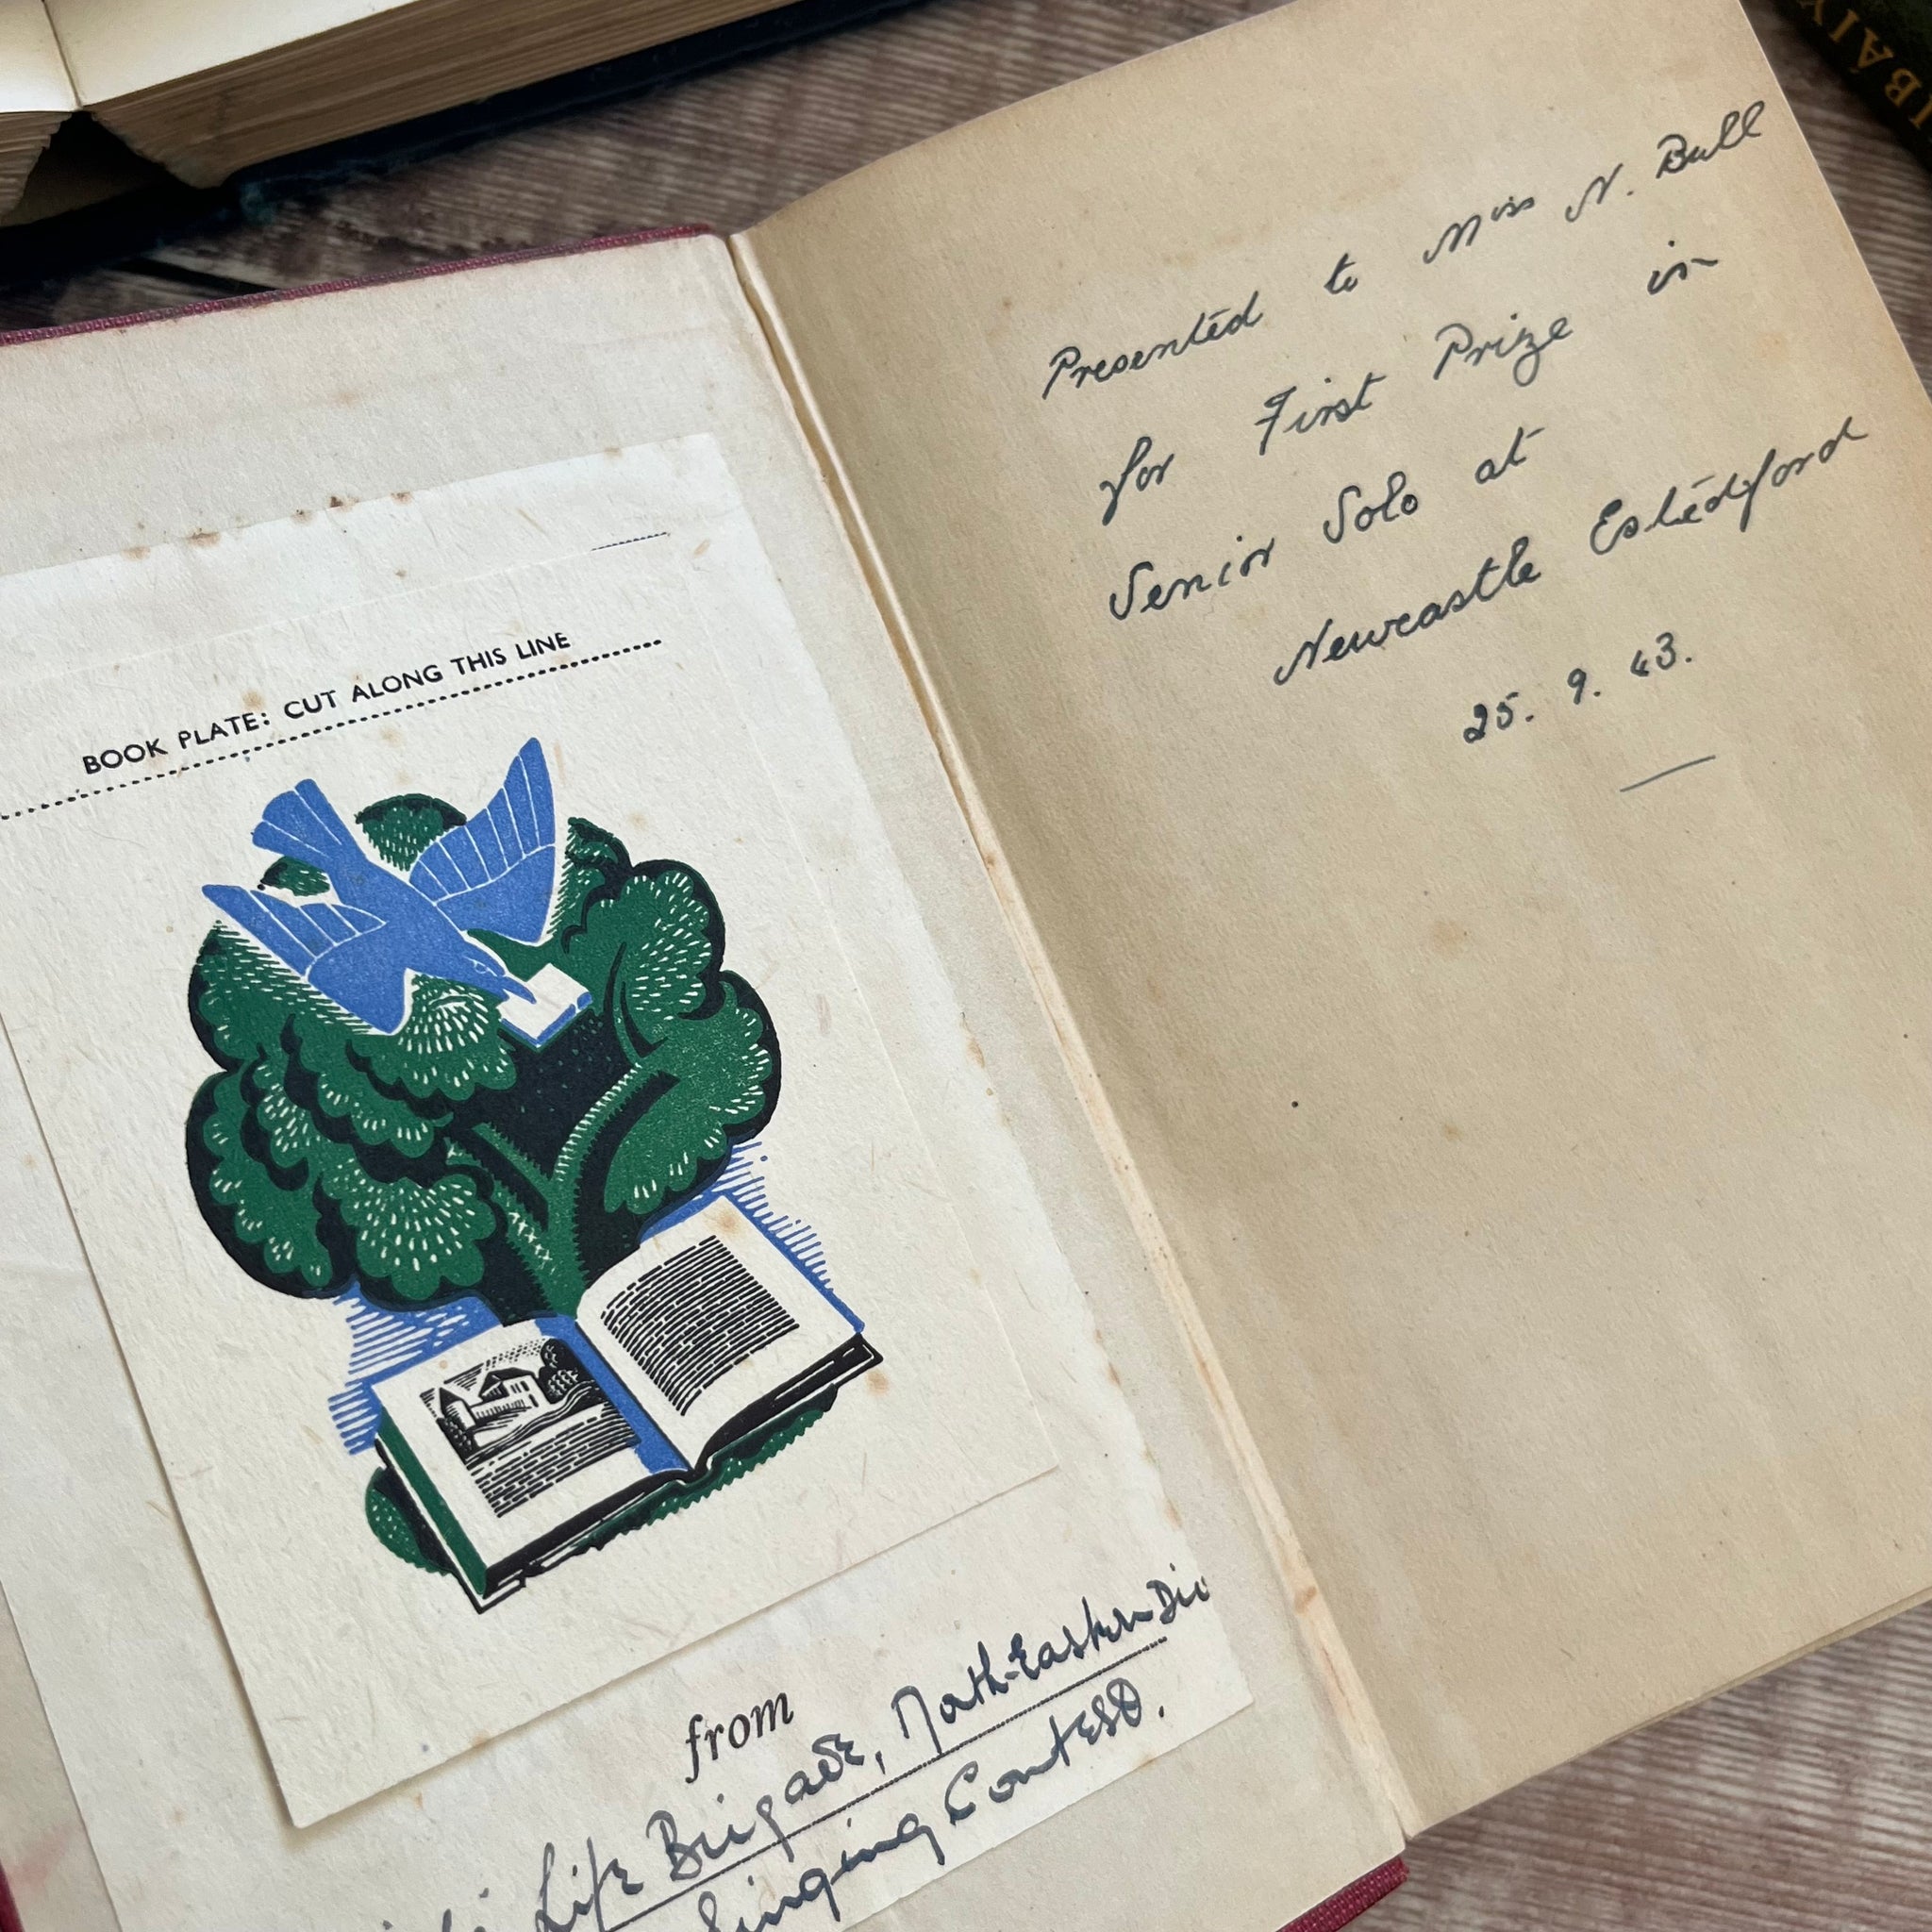 BOOK PLATE: CUT ALONG THIS LINE
from
Life Brigade, North-Eastern Div
Singing Contest.
Presented to Miss N. Bull
for First Prize in
Senior Solo at
Newcastle Estedford
25. 9. 43.
BAIY